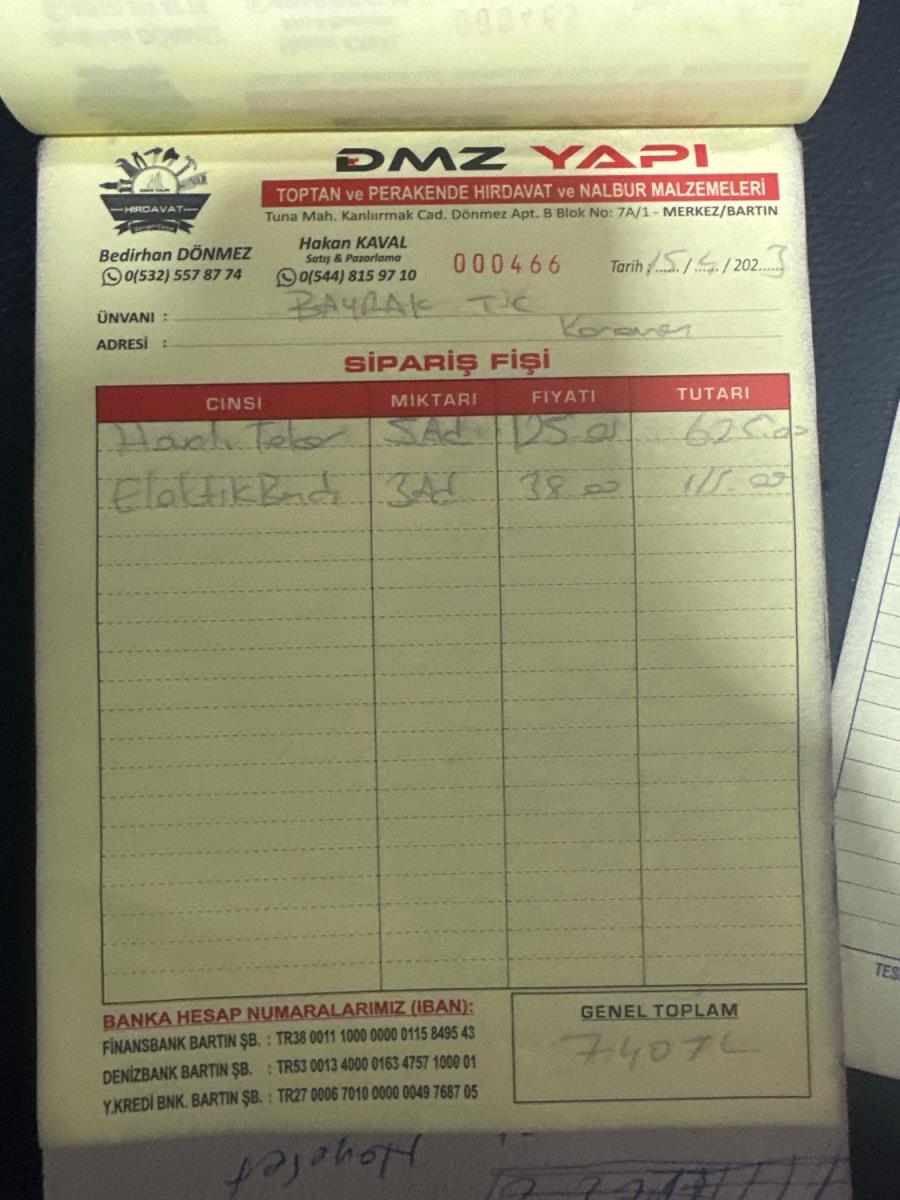 DMZ YAPI
TOPTAN ve PERAKENDE HIRDAVAT ve NALBUR MALZEMELERİ
Tuna Mah. Kanlıırmak Cad. Dönmez Apt. B Blok No: 7A/1 - MERKEZ/BARTIN
DMZ YAPI
HIRDAVAT
Bedirhan DÖNMEZ
0(532) 557 87 74
Hakan KAVAL
Satış & Pazarlama
0(544) 815 97 10
000466
Tarih : 15 / 4 / 2023
ÜNVANI : BAYRAK TİC
ADRESİ :
SİPARİŞ FİŞİ
CİNSİ MİKTARI FİYATI TUTARI
Havalı Teker 5Ad 125.00 625.00
Elektik Bandı 3Ad 38.00 115.00
BANKA HESAP NUMARALARIMIZ (IBAN):
FİNANSBANK BARTIN ŞB. : TR38 0011 1000 0000 0115 8495 43
DENİZBANK BARTIN ŞB. : TR53 0013 4000 0163 4757 1000 01
Y.KREDİ BNK. BARTIN ŞB. : TR27 0006 7010 0000 0049 7687 05
GENEL TOPLAM
740 TL
TES